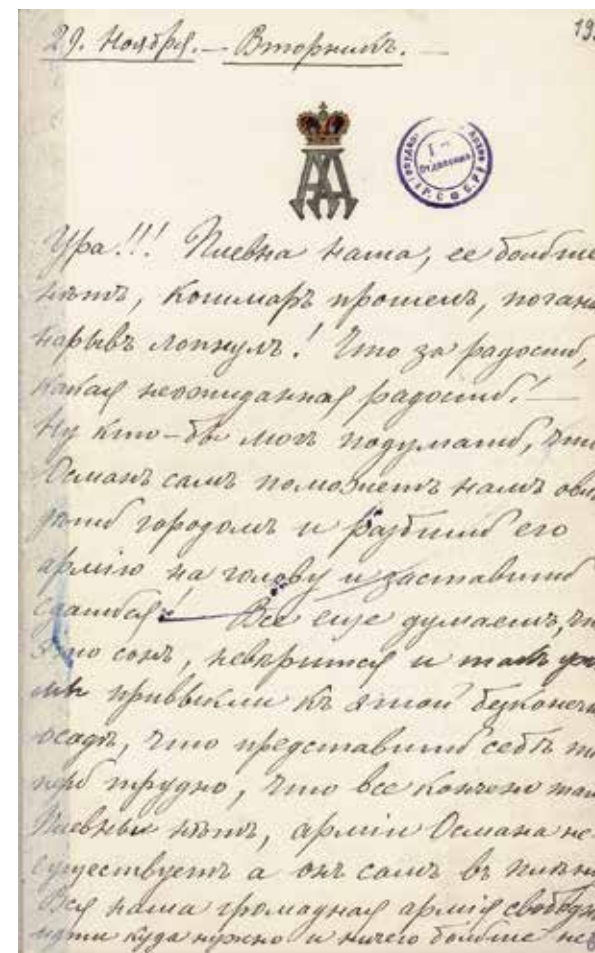 29. Ноября. — Вторникъ. —
19
I-е
Отдѣленіе
Р.С.Ф.С.Р.
Ура!!! Плевна наша, ее больше
нѣтъ, кошмаръ прошелъ, погань
нарывъ лопнулъ! Что за радость,
какая неожиданная радость! —
Ну кто-бы могъ подумать, что
Османъ самъ поможетъ намъ овл
дѣть городомъ и разбить его
армію на голову и заставить
сдаться! — Все еще думаемъ, чт
это сонъ, невѣрится и такъ уж
мы привыкли къ этой безконечн
осадѣ, что представить себѣ те
перь трудно, что все кончено там
Плевны нѣтъ, арміи Османа не
существуетъ а онъ самъ въ плѣну
Вся наша громадная армія свободна
идти куда нужно и ничего больше не